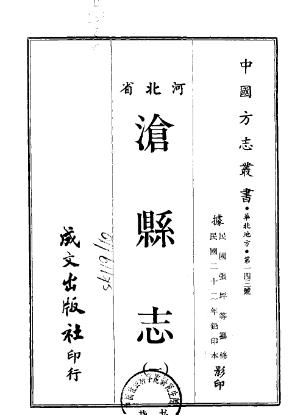 中國方志叢書•華北地方•第一四三號
據民國張坪等纂修
民國二十二年鉛印本影印
河北省
滄縣志
(一)
成文出版社印行